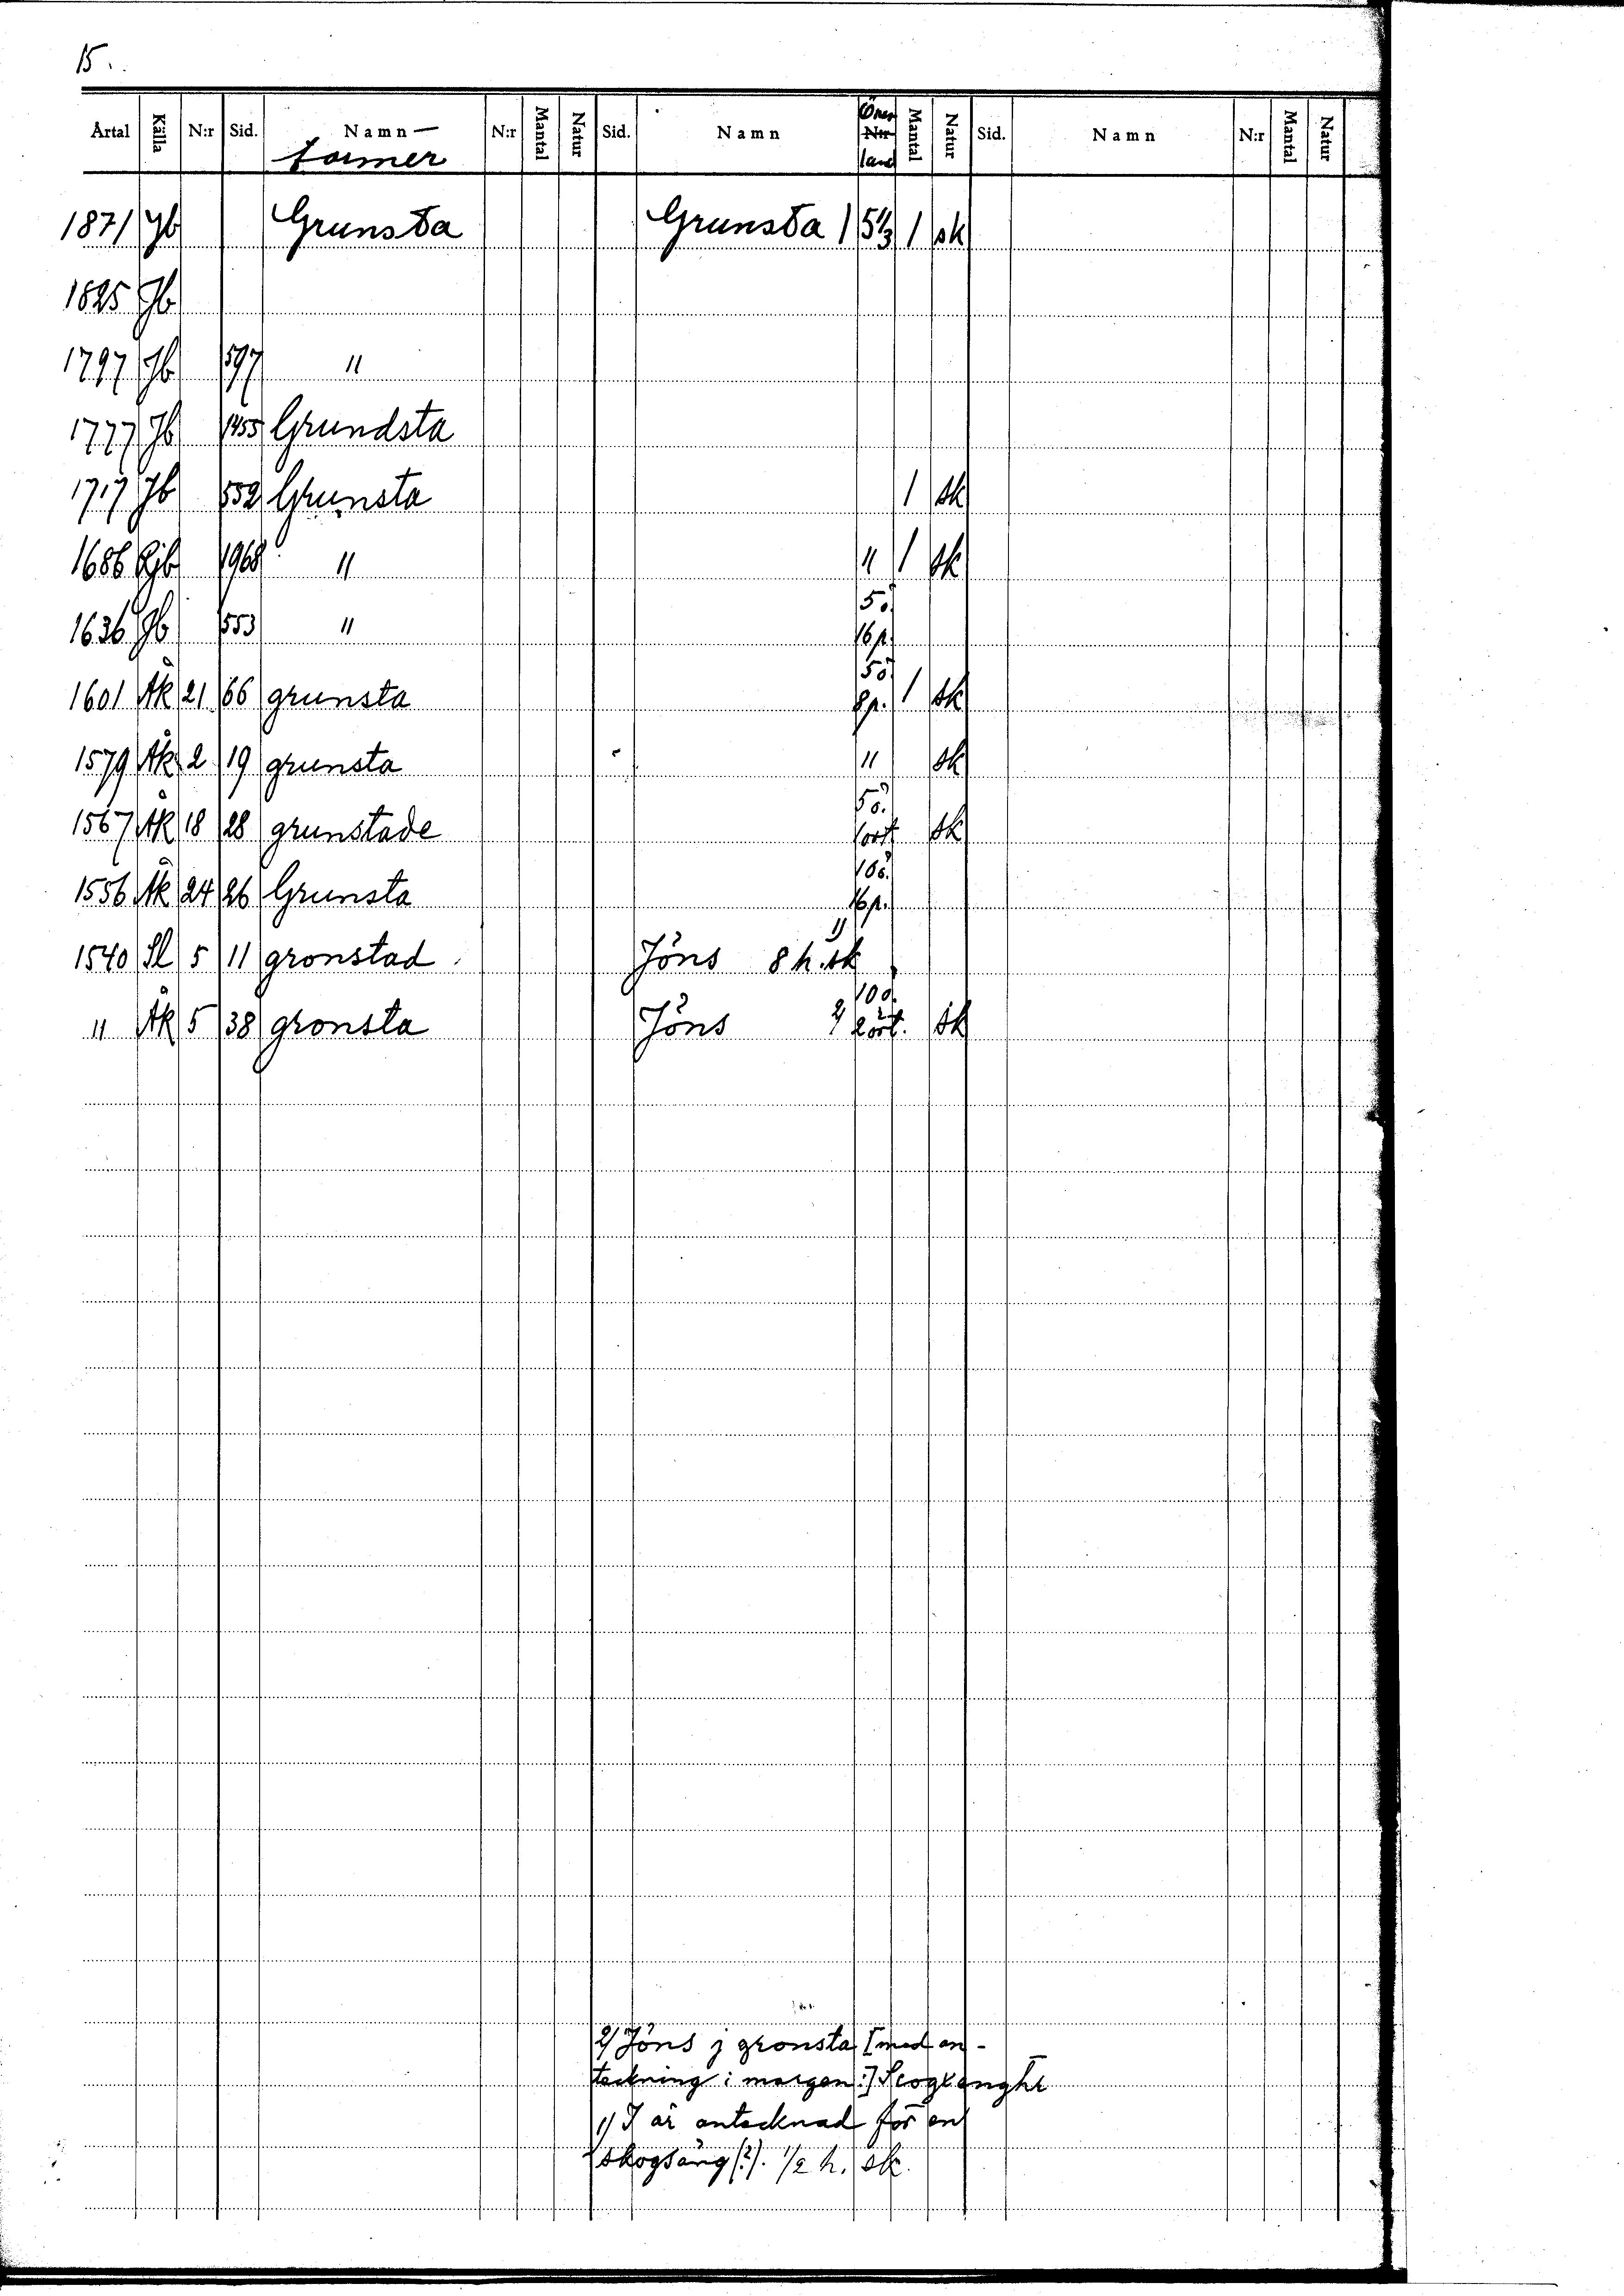 15.
Årtal Källa N:r Sid. Namn— N:r Mantal Natur Sid. Namn Öres N:r Mantal Natur Sid. Namn N:r Mantal Natur
former land
1871 Jb Grunsta Grunsta 1 5⅓ 1 sk
1825 Jb
1797 Jb 597 "
1777 Jb 1455 Grundsta
1717 Jb 552 Grunsta 1 sk
1686 Rjb 1968 " " 1 sk
5ö.
1636 Jb 553 " 16p.
5ö
1601 Åk 21 66 grunsta 8p. 1 sk
1579 Åk 2 19 grunsta " sk
5ö.
1567 Åk 18 28 grunstade 1ört sk
10ö.
1556 Åk 24 26 Grunsta 16p.
1540 Sl 5 11 gronstad Jöns 8 h. sk 1)
10ö.
" Åk 5 38 gronsta Jöns 2) 2ört. sk
2) Jöns j gronsta [med an-
teckning i margen:] Scogxenghr
1) J är antecknad för en
skogsäng (?). 1/2 h. sk.